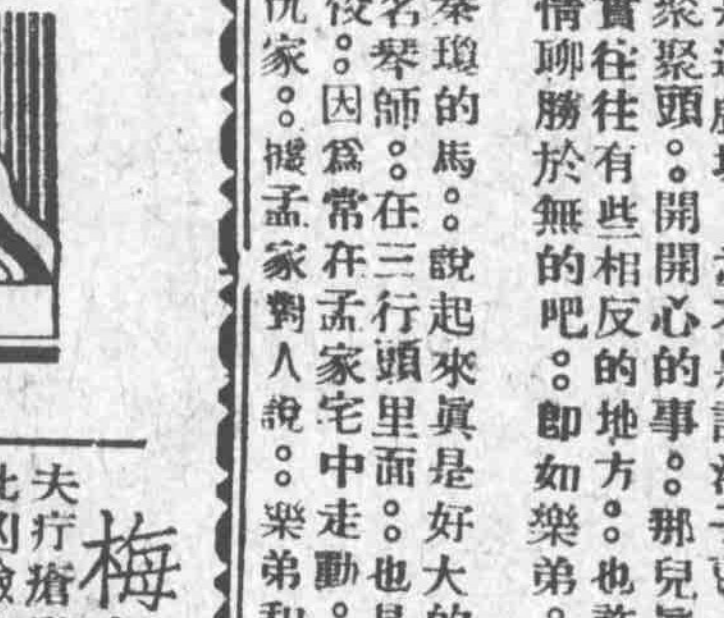 聚聚頭。。開開心的事。。那兒
實往往有些相反的地方。。也許
情聊勝於無的吧。。卽如樂弟。
秦瓊的馬。。說起來眞是好大的
名琴師。。在三行頭里面。。也是
。。因爲常在孟家宅中走動。
仇家。。據孟家對人說。。樂弟和
梅
夫疔瘡